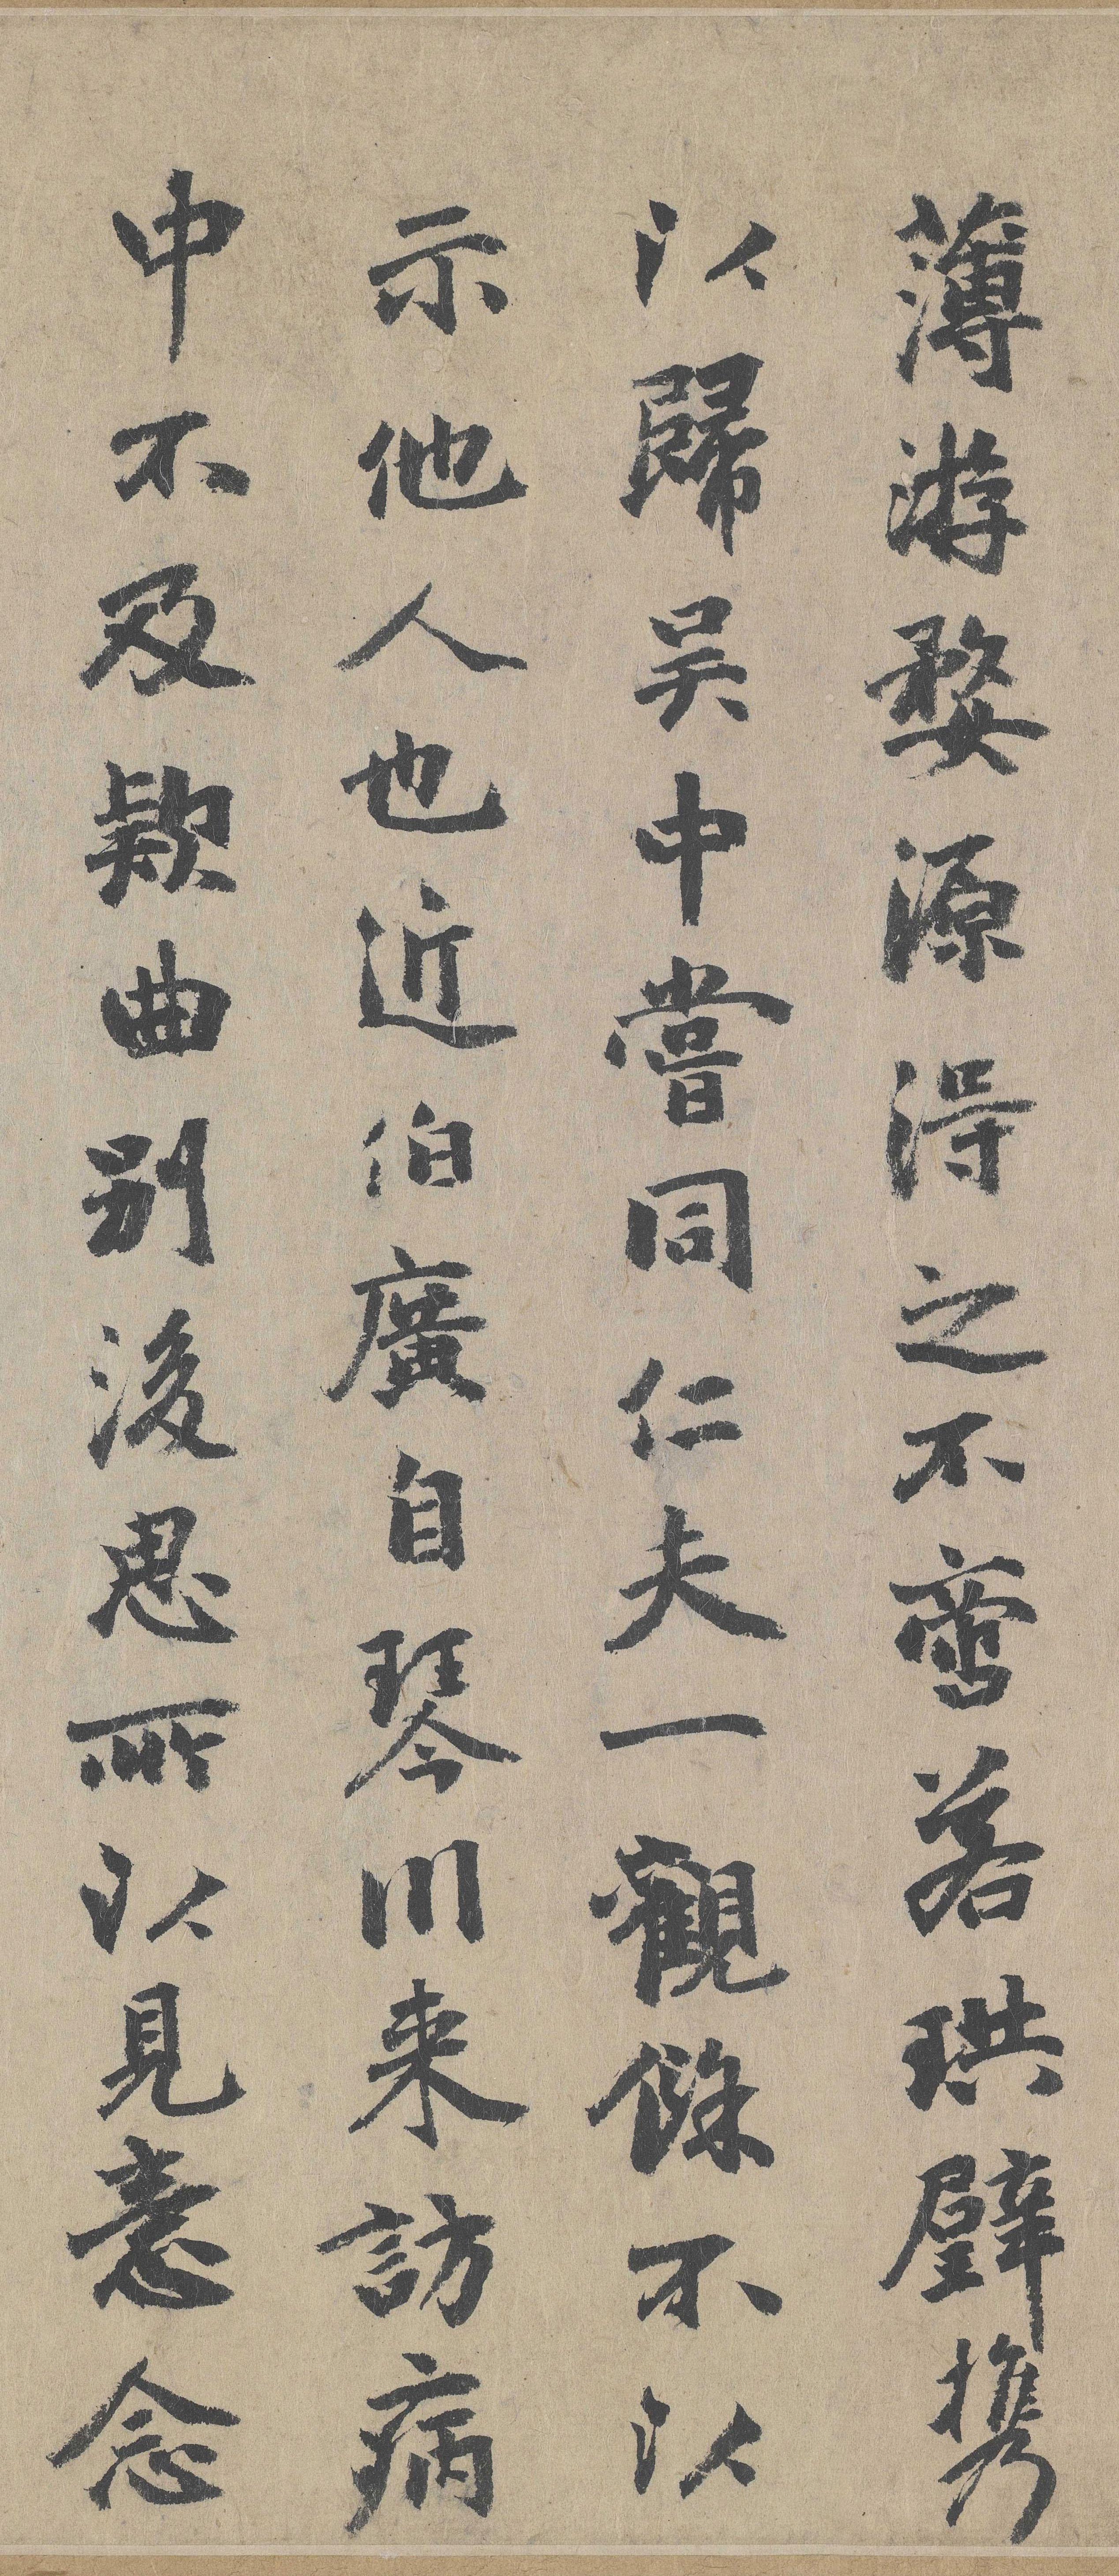 薄游婺源得之不啻若珙璧携
以歸吴中嘗同仁夫一觀餘不以
示他人也近伯廣自琴川来訪病
中不及款曲别後思所以見意念